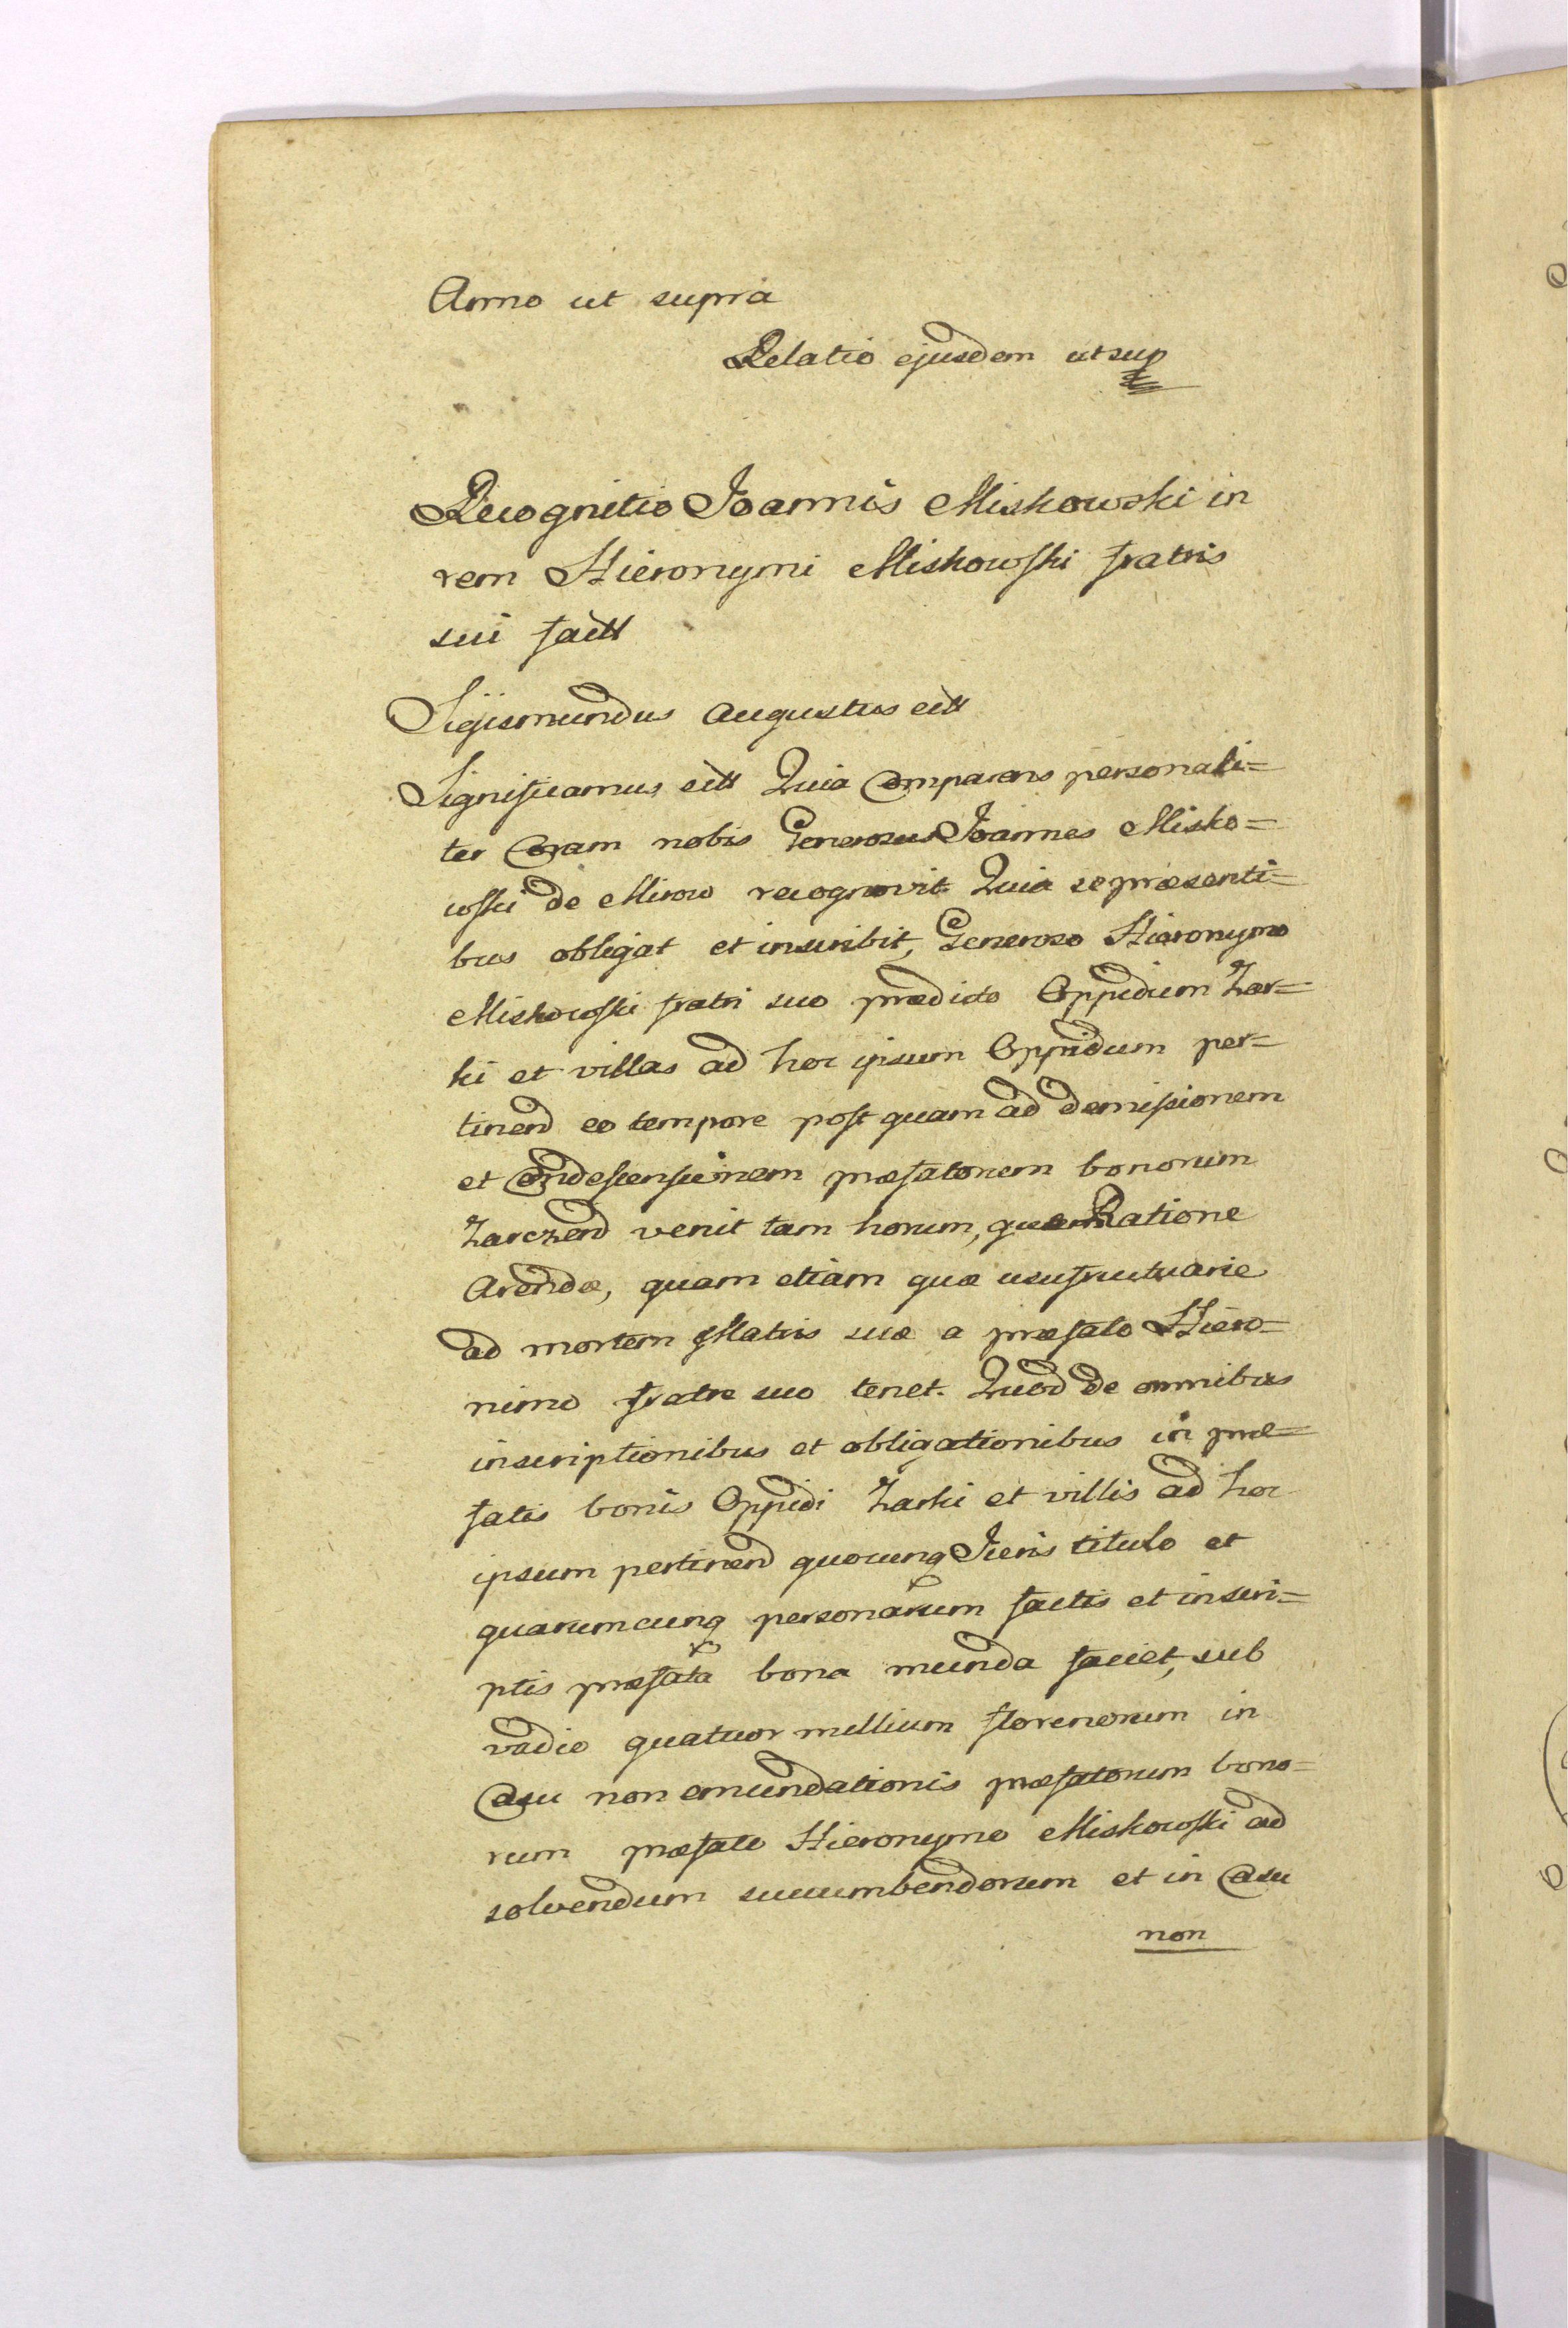 Anno ut supra
Relatio ejusdem ut sup
Recognitio Joannis Miskowski in
rem Hieronymi Miskowski fratris
sui fact
Sigismundus Augustus ett
Significamus ett Quia Comparens personali=
ter Coram nobis Generosus Joannes Misko=
wski de Mirow recognovit. Quia se præsenti=
bus obligat et inscribit, Generoso Hieronymo
Miskowski fratri suo prædicto Oppidum Zar=
ki et villas ad hoc ipsum Oppidum per=
tinend eo tempore post quam ad demissionem
et Condescensionem præfatorum bonorum
Zarczend venit tam horum, quæ Ratione
Arendæ, quam etiam quæ usufructuarie
ad mortem Matris suæ a præfato Hiero=
nimo fratre suo tenet. Quod de omnibus
inscriptionibus et obligationibus in præ=
fatis bonis Oppidi Zarki et villis ad hoc
ipsum pertinend quocunq Juris titulo et
quarumcunq personarum factis et inscri=
ptis præfata bona munda faciet, sub
vadio quatuor millium florenorum in
Casu non emundationis præfatorum bono=
rum præfato Hieronymo Miskowski ad
solvendum succumbendorum et in Casu
non